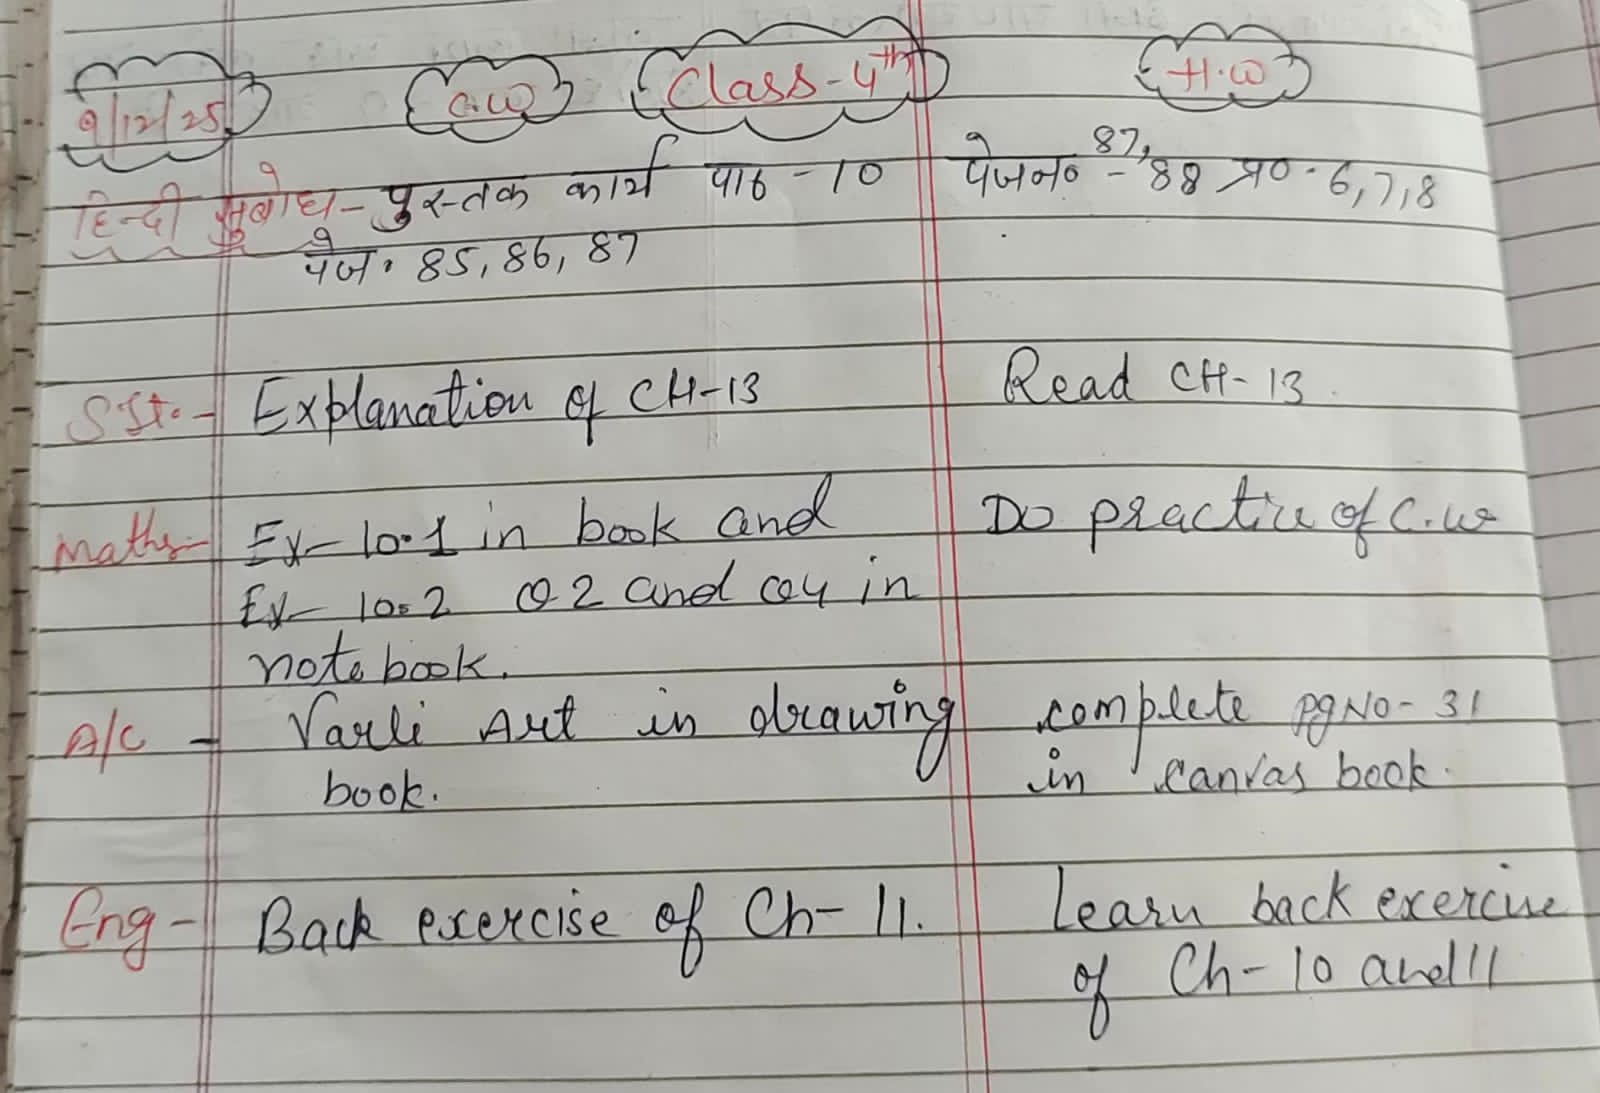 9/12/25 C.W Class-4th H.W
हिन्दी सुबोध- पुस्तक कार्य पाठ -10 पेज न० - 87, 88 प्र०. 6,7,8
पेज. 85, 86, 87
S.St. - Explanation of CH-13 Read CH-13.
Maths- Ex- 10.1 in book and Do practice of C.w
Ex- 10.2 Q2 and Q4 in
notebook.
A/C - Varli Art in drawing complete pg No- 31
book. in canvas book.
Eng- Back exercise of Ch- 11. Learn back exercise
of Ch- 10 and 11